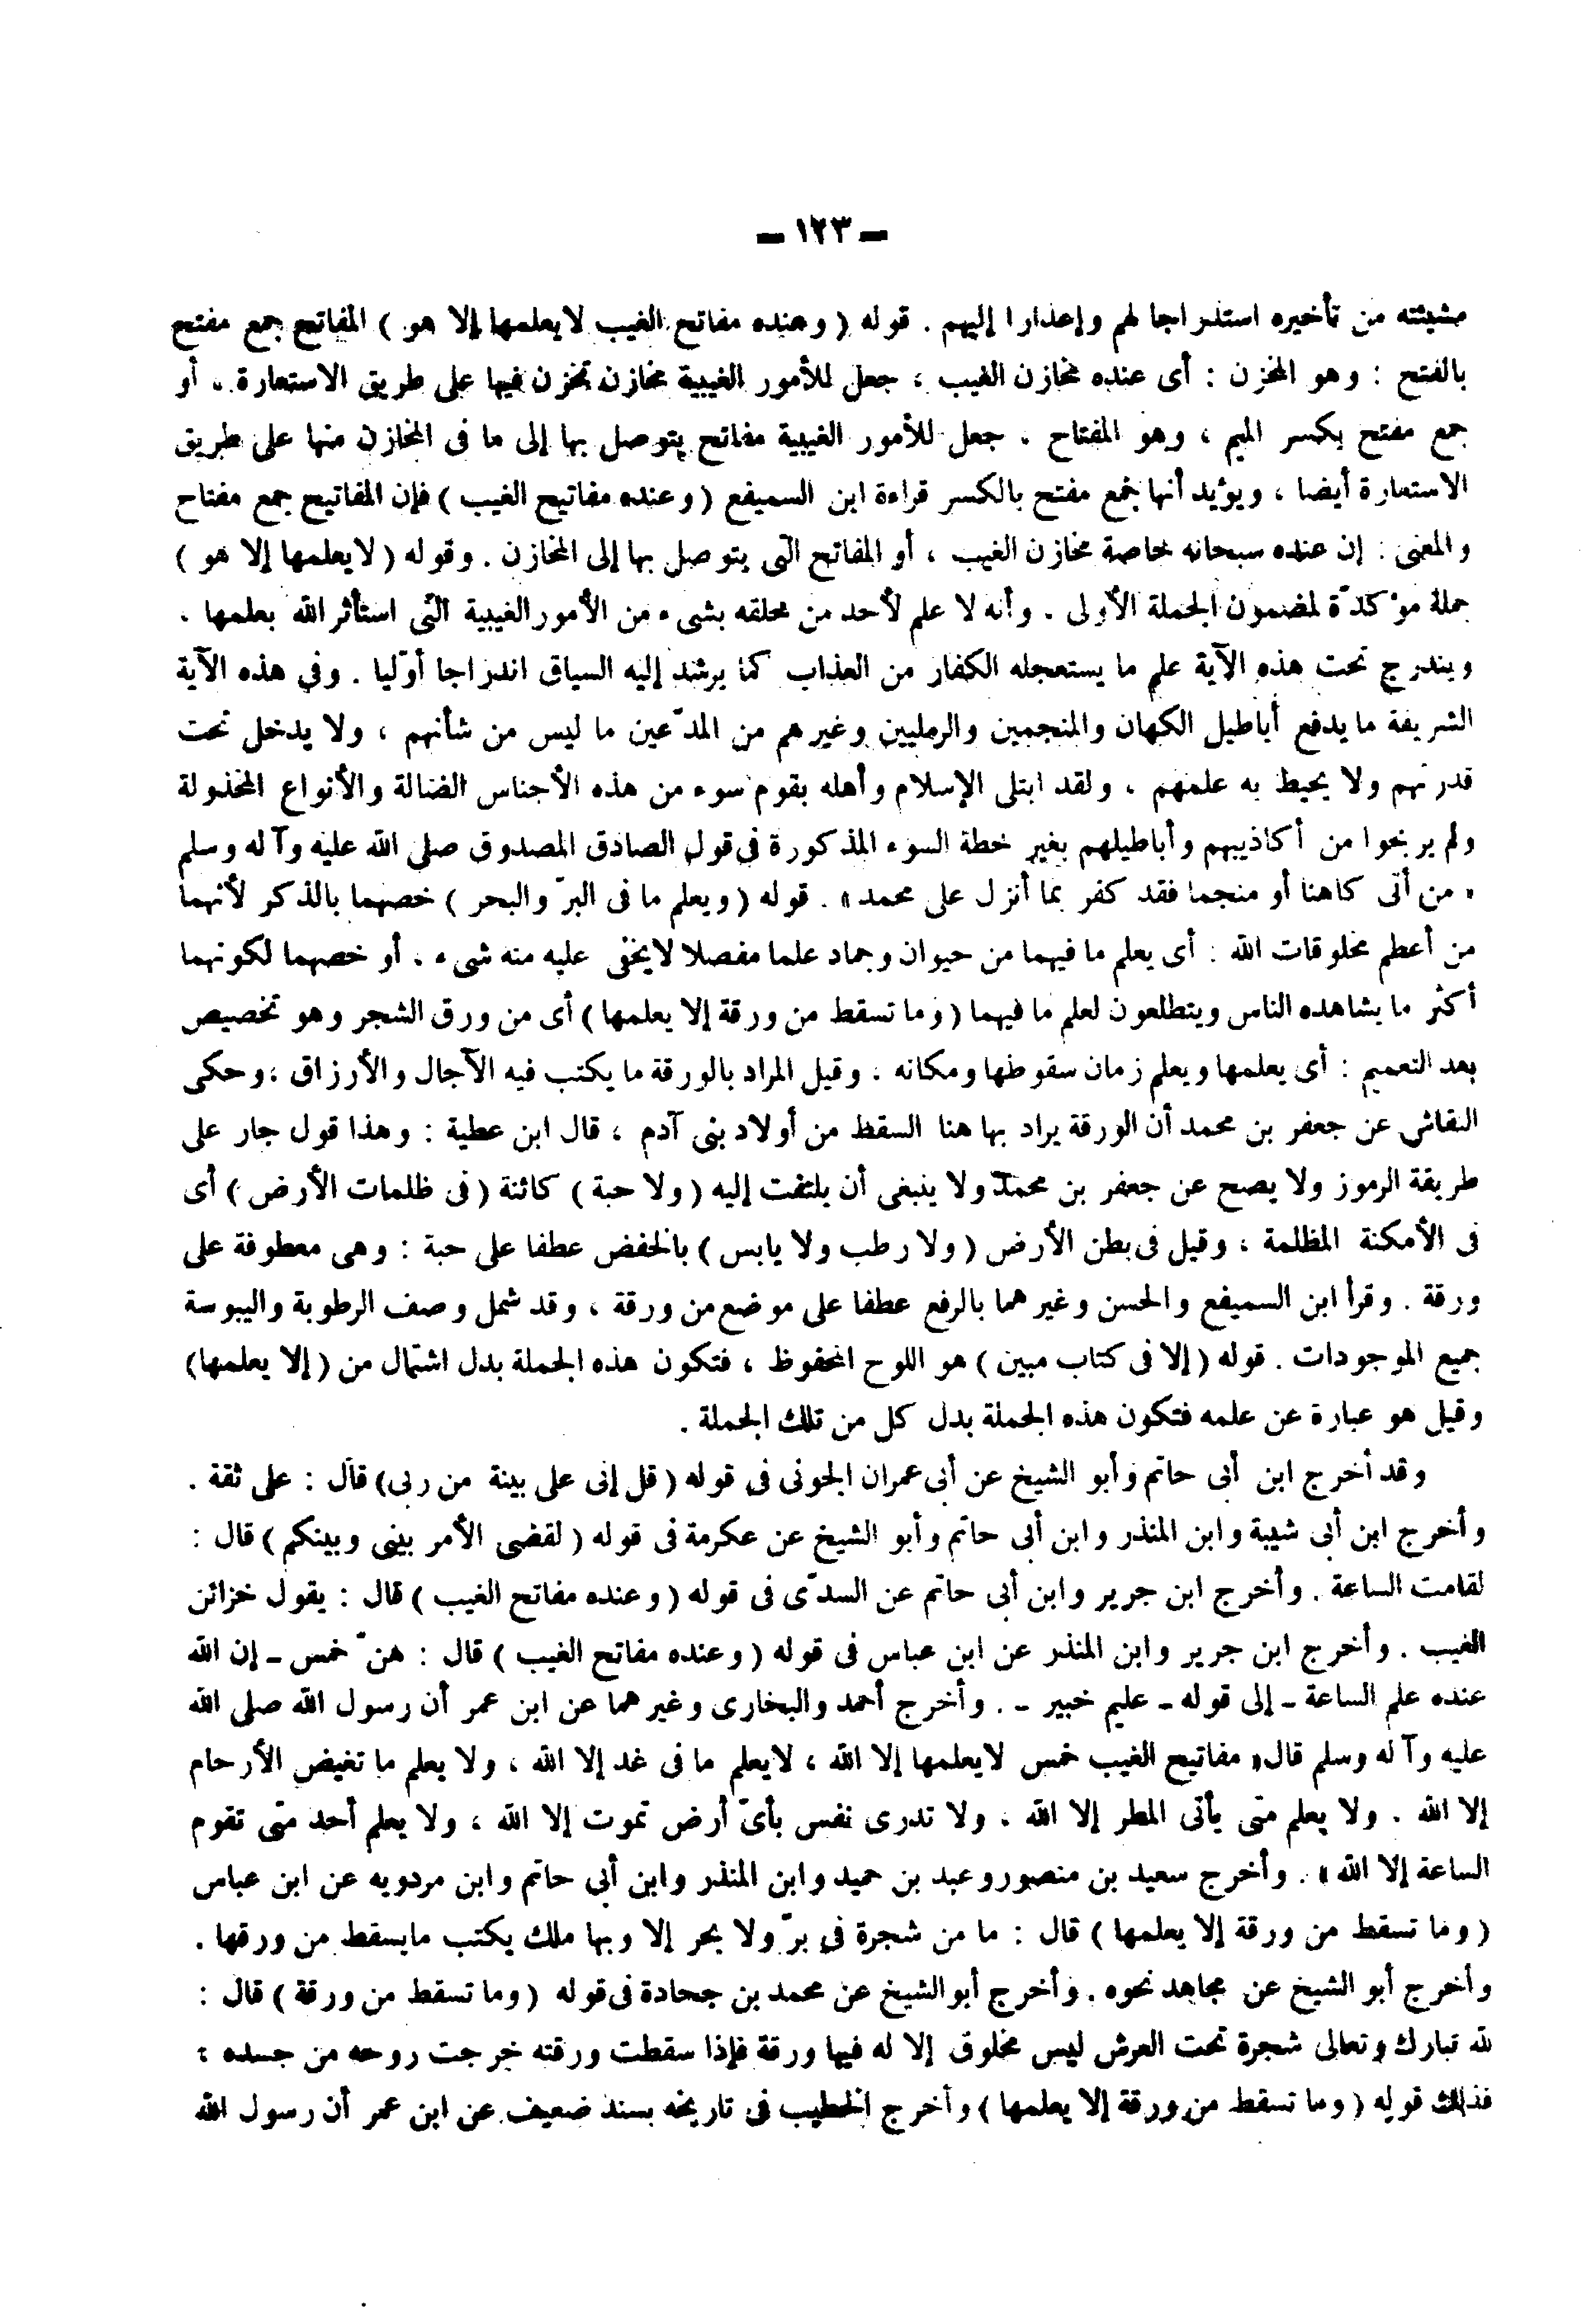 ـ ١٢٣ ـ
مشيئته من تأخيره استدراجا لهم وإعذارا إليهم . قوله ( وعنده مفاتح الغيب لايعلمها إلا هو ) المفاتح جمع مفتح
بالفتح : وهو المخزن : أى عنده مخازن الغيب ، جعل للأمور الغيبية مخازن تخزن فيها على طريق الاستعارة ، أو
جمع مفتح بكسر الميم ، وهو المفتاح ، جعل للأمور الغيبية مفاتح يتوصل بها إلى ما فى المخازن منها على طريق
الاستعارة أيضا ، ويؤيد أنها جمع مفتح بالكسر قراءة ابن السميفع ( وعنده مفاتيح الغيب ) فإن المفاتيح جمع مفتاح
والمعنى : إن عنده سبحانه خاصة مخازن الغيب ، أو المفاتح التى يتوصل بها إلى المخازن . وقوله ( لايعلمها إلا هو )
جملة مؤكدّة لمضمون الجملة الأولى . وأنه لا علم لأحد من خلقه بشىء من الأمور الغيبية التى استأثر الله بعلمها ،
ويندرج تحت هذه الآية علم ما يستعجله الكفار من العذاب كما يرشد إليه السياق اندراجا أوّليا . وفى هذه الآية
الشريفة ما يدفع أباطيل الكهان والمنجمين والرمليين وغيرهم من المدّعين ما ليس من شأنهم ، ولا يدخل تحت
قدرتهم ولا يحيط به علمهم ، ولقد ابتلى الإسلام وأهله بقوم سوء من هذه الأجناس الضالة والأنواع المخذولة
ولم يربحوا من أكاذيبهم وأباطيلهم بغير خطة السوء المذكورة فى قول الصادق المصدوق صلى الله عليه وآله وسلم
« من أتى كاهنا أو منجما فقد كفر بما أنزل على محمد » . قوله ( ويعلم ما فى البرّ والبحر ) خصهما بالذكر لأنهما
من أعظم مخلوقات الله : أى يعلم ما فيهما من حيوان وجماد علما مفصلا لايخفى عليه منه شىء ، أو خصهما لكونهما
أكثر ما يشاهده الناس ويتطلعون لعلم ما فيهما ( وما تسقط من ورقة إلا يعلمها ) أى من ورق الشجر وهو تخصيص
بعد التعميم : أى يعلمها ويعلم زمان سقوطها ومكانه ، وقيل المراد بالورقة ما يكتب فيه الآجال والأرزاق ، وحكى
النقاش عن جعفر بن محمد أن الورقة يراد بها هنا السقط من أولاد بنى آدم ، قال ابن عطية : وهذا قول جار على
طريقة الرموز ولا يصح عن جعفر بن محمد ولا ينبغى أن يلتفت إليه ( ولا حبة ) كائنة ( فى ظلمات الأرض ) أى
فى الأمكنة المظلمة ، وقيل فى بطن الأرض ( ولا رطب ولا يابس ) بالخفض عطفا على حبة : وهى معطوفة على
ورقة . وقرأ ابن السميفع والحسن وغيرهما بالرفع عطفا على موضع من ورقة ، وقد شمل وصف الرطوبة واليبوسة
جميع الموجودات . قوله ( إلا فى كتاب مبين ) هو اللوح المحفوظ ، فتكون هذه الجملة بدل اشتمال من ( إلا يعلمها)
وقيل هو عبارة عن علمه فتكون هذه الجملة بدل كل من تلك الجملة .
وقد أخرج ابن أبى حاتم وأبو الشيخ عن أبى عمران الجونى فى قوله ( قل إنى على بينة من ربى) قال : على ثقة .
وأخرج ابن أبى شيبة وابن المنذر وابن أبى حاتم وأبو الشيخ عن عكرمة فى قوله ( لقضى الأمر بينى وبينكم ) قال :
لقامت الساعة . وأخرج ابن جرير وابن أبى حاتم عن السدّى فى قوله ( وعنده مفاتح الغيب ) قال : يقول خزائن
الغيب . وأخرج ابن جرير وابن المنذر عن ابن عباس فى قوله ( وعنده مفاتح الغيب ) قال : هنّ خمس ـ إن الله
عنده علم الساعة ـ إلى قوله ـ عليم خبير ـ . وأخرج أحمد والبخارى وغيرهما عن ابن عمر أن رسول الله صلى الله
عليه وآله وسلم قال « مفاتيح الغيب خمس لايعلمها إلا الله ، لايعلم ما فى غد إلا الله ، ولا يعلم ما تغيض الأرحام
إلا الله . ولا يعلم متى يأتى المطر إلا الله ، ولا تدرى نفس بأىّ أرض تموت إلا الله ، ولا يعلم أحد متى تقوم
الساعة إلا الله » . وأخرج سعيد بن منصور وعبد بن حميد وابن المنذر وابن أبى حاتم وابن مردويه عن ابن عباس
( وما تسقط من ورقة إلا يعلمها ) قال : ما من شجرة فى برّ ولا بحر إلا وبها ملك يكتب مايسقط من ورقها .
وأخرج أبو الشيخ عن مجاهد نحوه . وأخرج أبو الشيخ عن محمد بن جحادة فى قوله ( وما تسقط من ورقة ) قال :
لله تبارك وتعالى شجرة تحت العرش ليس مخلوق إلا له فيها ورقة فإذا سقطت ورقته خرجت روحه من جسده ؛
فذلك قوله ( وما تسقط من ورقة إلا يعلمها ) وأخرج الخطيب فى تاريخه بسند ضعيف عن ابن عمر أن رسول الله